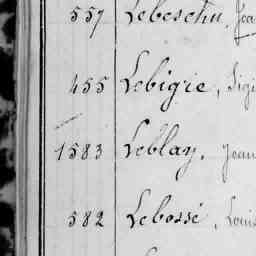 557 Lebeschu, Jea
455 Lebigre, Sigi
1583 Leblay, Jean
582 Lebossé, Louis